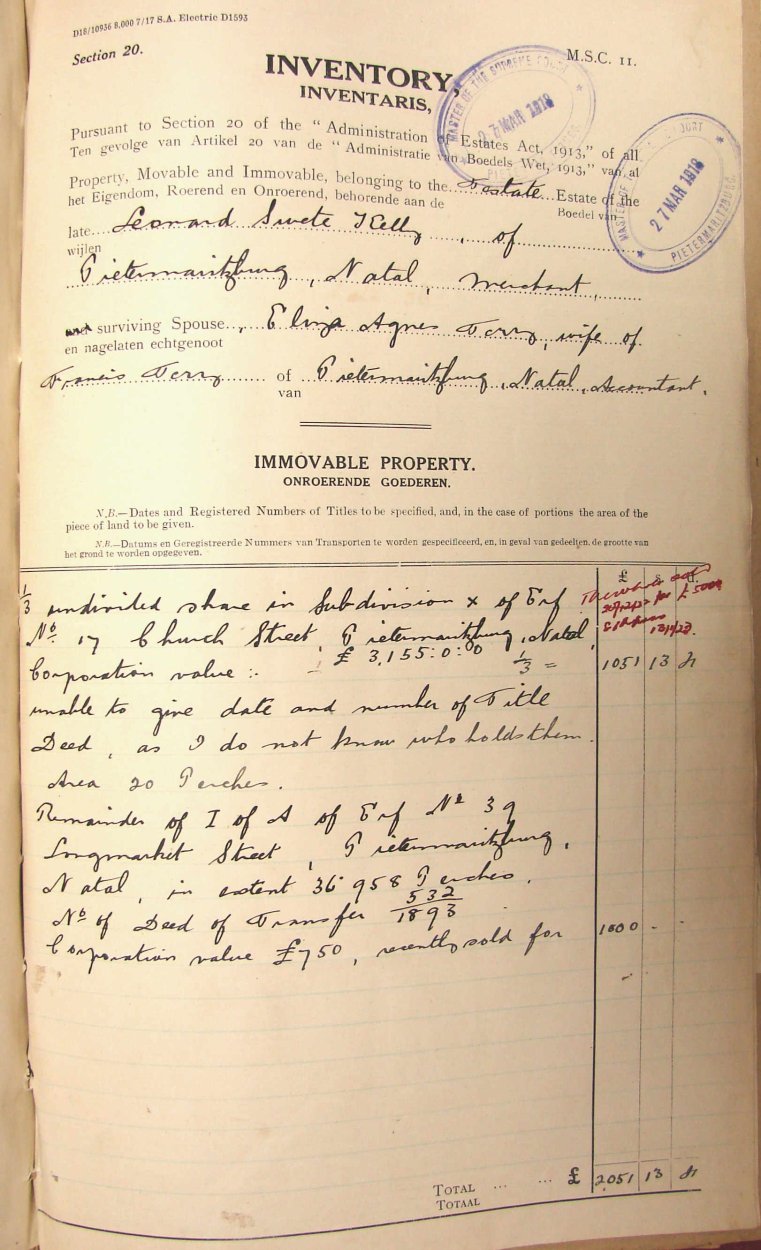 D18/10936 8.000 7/17 S.A. Electric D1593
Section 20.
M.S.C. 11.
INVENTORY,
INVENTARIS,
MASTER OF THE SUPREME COURT
27 MAR 1918
MASTER OF COURT
27 MAR 1918
PIETERMARITZBURG.
Pursuant to Section 20 of the "Administration of Estates Act, 1913," of all
Ten gevolge van Artikel 20 van de "Administratie van Boedels Wet, 1913," van al
Property, Movable and Immovable, belonging to the Testate Estate of the
het Eigendom, Roerend en Onroerend, behorende aan de Boedel van
late Leonard Swete Kelly, of
wijlen
Pietermaritzburg, Natal, merchant,
and surviving Spouse, Eliza Agnes Terry, wife of
en nagelaten echtgenoot
Francis Terry of Pietermaritzburg, Natal, Accountant.
van
IMMOVABLE PROPERTY.
ONROERENDE GOEDEREN.
N.B.—Dates and Registered Numbers of Titles to be specified, and, in the case of portions the area of the
piece of land to be given.
N.B.—Datums en Geregistreerde Nummers van Transporten te worden gespecificeerd, en, in geval van gedeelten, de grootte van
het grond te worden opgegeven.
£ s d.
1/3 undivided share in Subdivision X of Erf
£5000
No. 17 Church Street, Pietermaritzburg, Natal,
Corporation value :- £3,155:0:0 1/3 = 1051 13 4
unable to give date and number of Title
Deed, as I do not know who holds them.
Area 20 Perches.
Remainder of I of A of Erf No 39
Longmarket Street, Pietermaritzburg,
Natal, in extent 36.958 Perches.
No of Deed of Transfer 532/1893
Corporation value £750, recently sold for 1000 - -
TOTAL ... ... £ 2051 13 4
TOTAAL